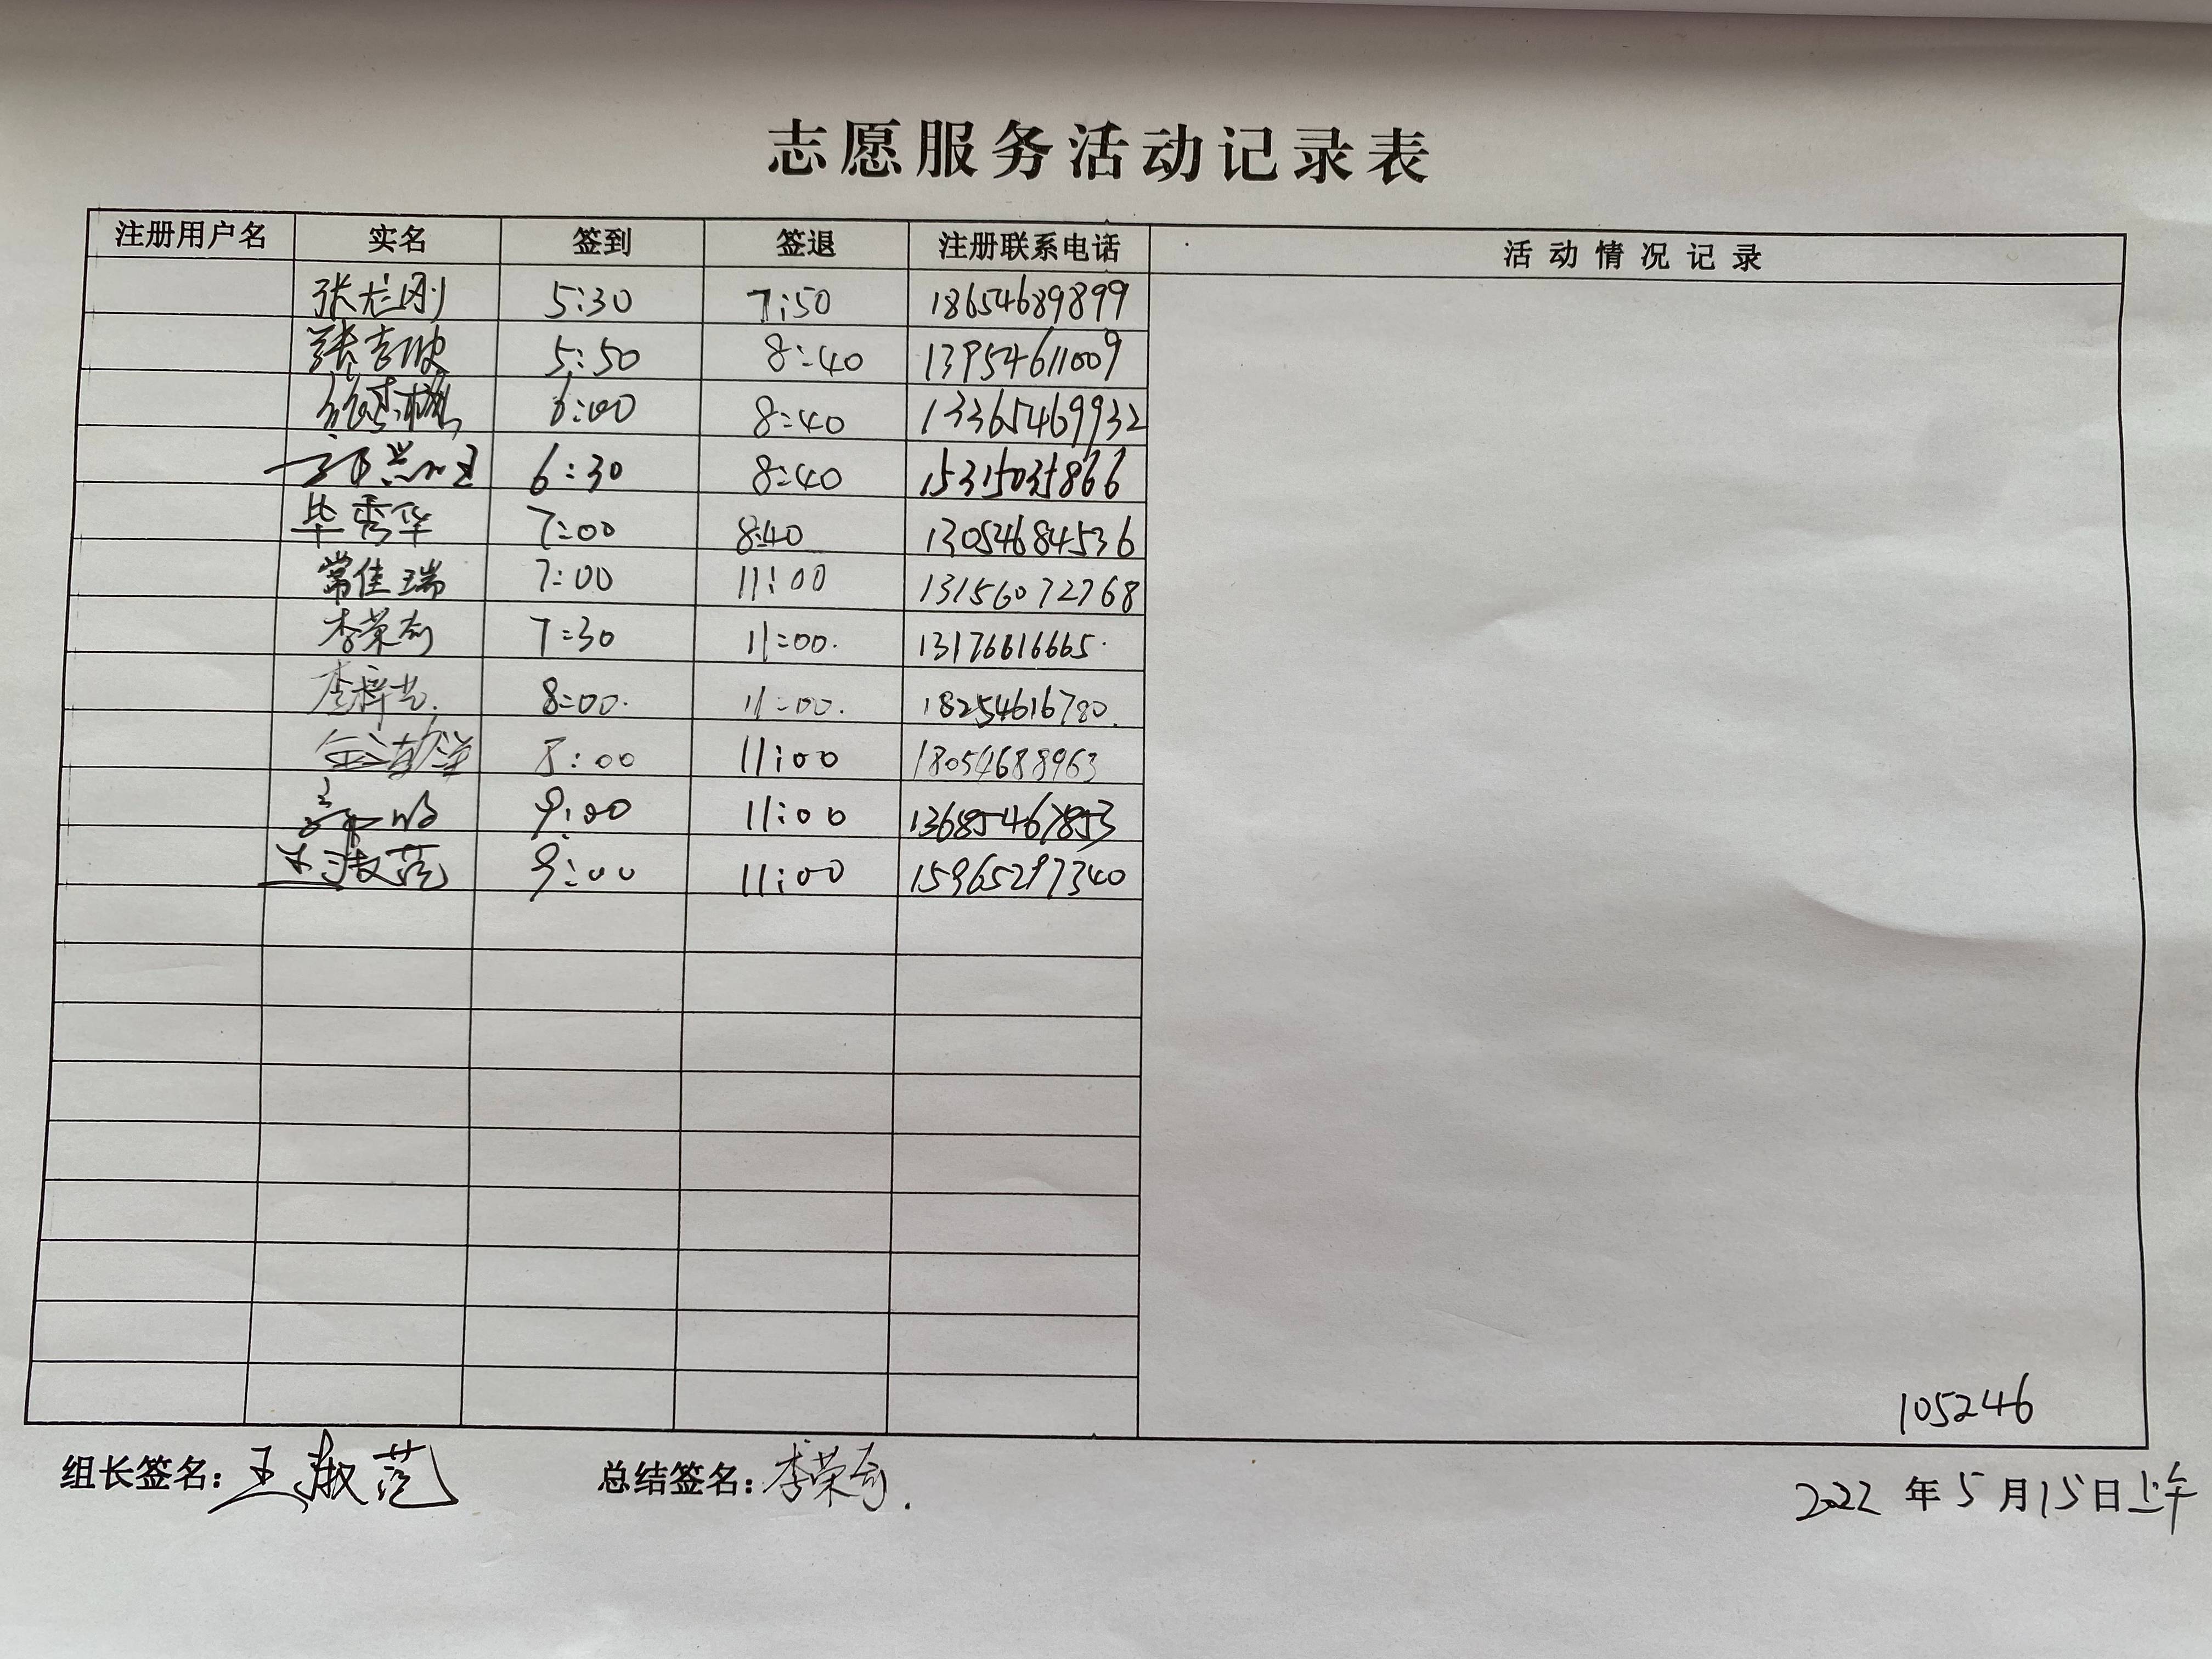 志愿服务活动记录表
注册用户名 实名 签到 签退 注册联系电话 活动情况记录
张志刚 5:30 7:50 18654689899
张吉波 5:50 8:40 13954611009
6:00 8:40 13365469932
6:30 8:40 15315035866
毕秀华 7:00 8:40 13054684536
常佳瑞 7:00 11:00 13156072768
李荣奇 7:30 11:00. 13176616665.
李梓艺. 8:00. 11:00. 18254616780.
8:00 11:00 18054688963
9:00 11:00 13685467853
王淑范 9:00 11:00 15965297340
105246
组长签名:王淑范 总结签名:李荣奇.
2022年5月15日上午